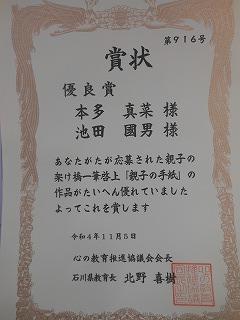 第916号
賞状
優良賞
本多 真菜 様
池田 國男 様
あなたがたが応募された親子の
架け橋一筆啓上「親子の手紙」の
作品がたいへん優れていました
よってこれを賞します
令和4年11月5日
心の教育推進協議会会長
石川県教育長 北野 喜樹